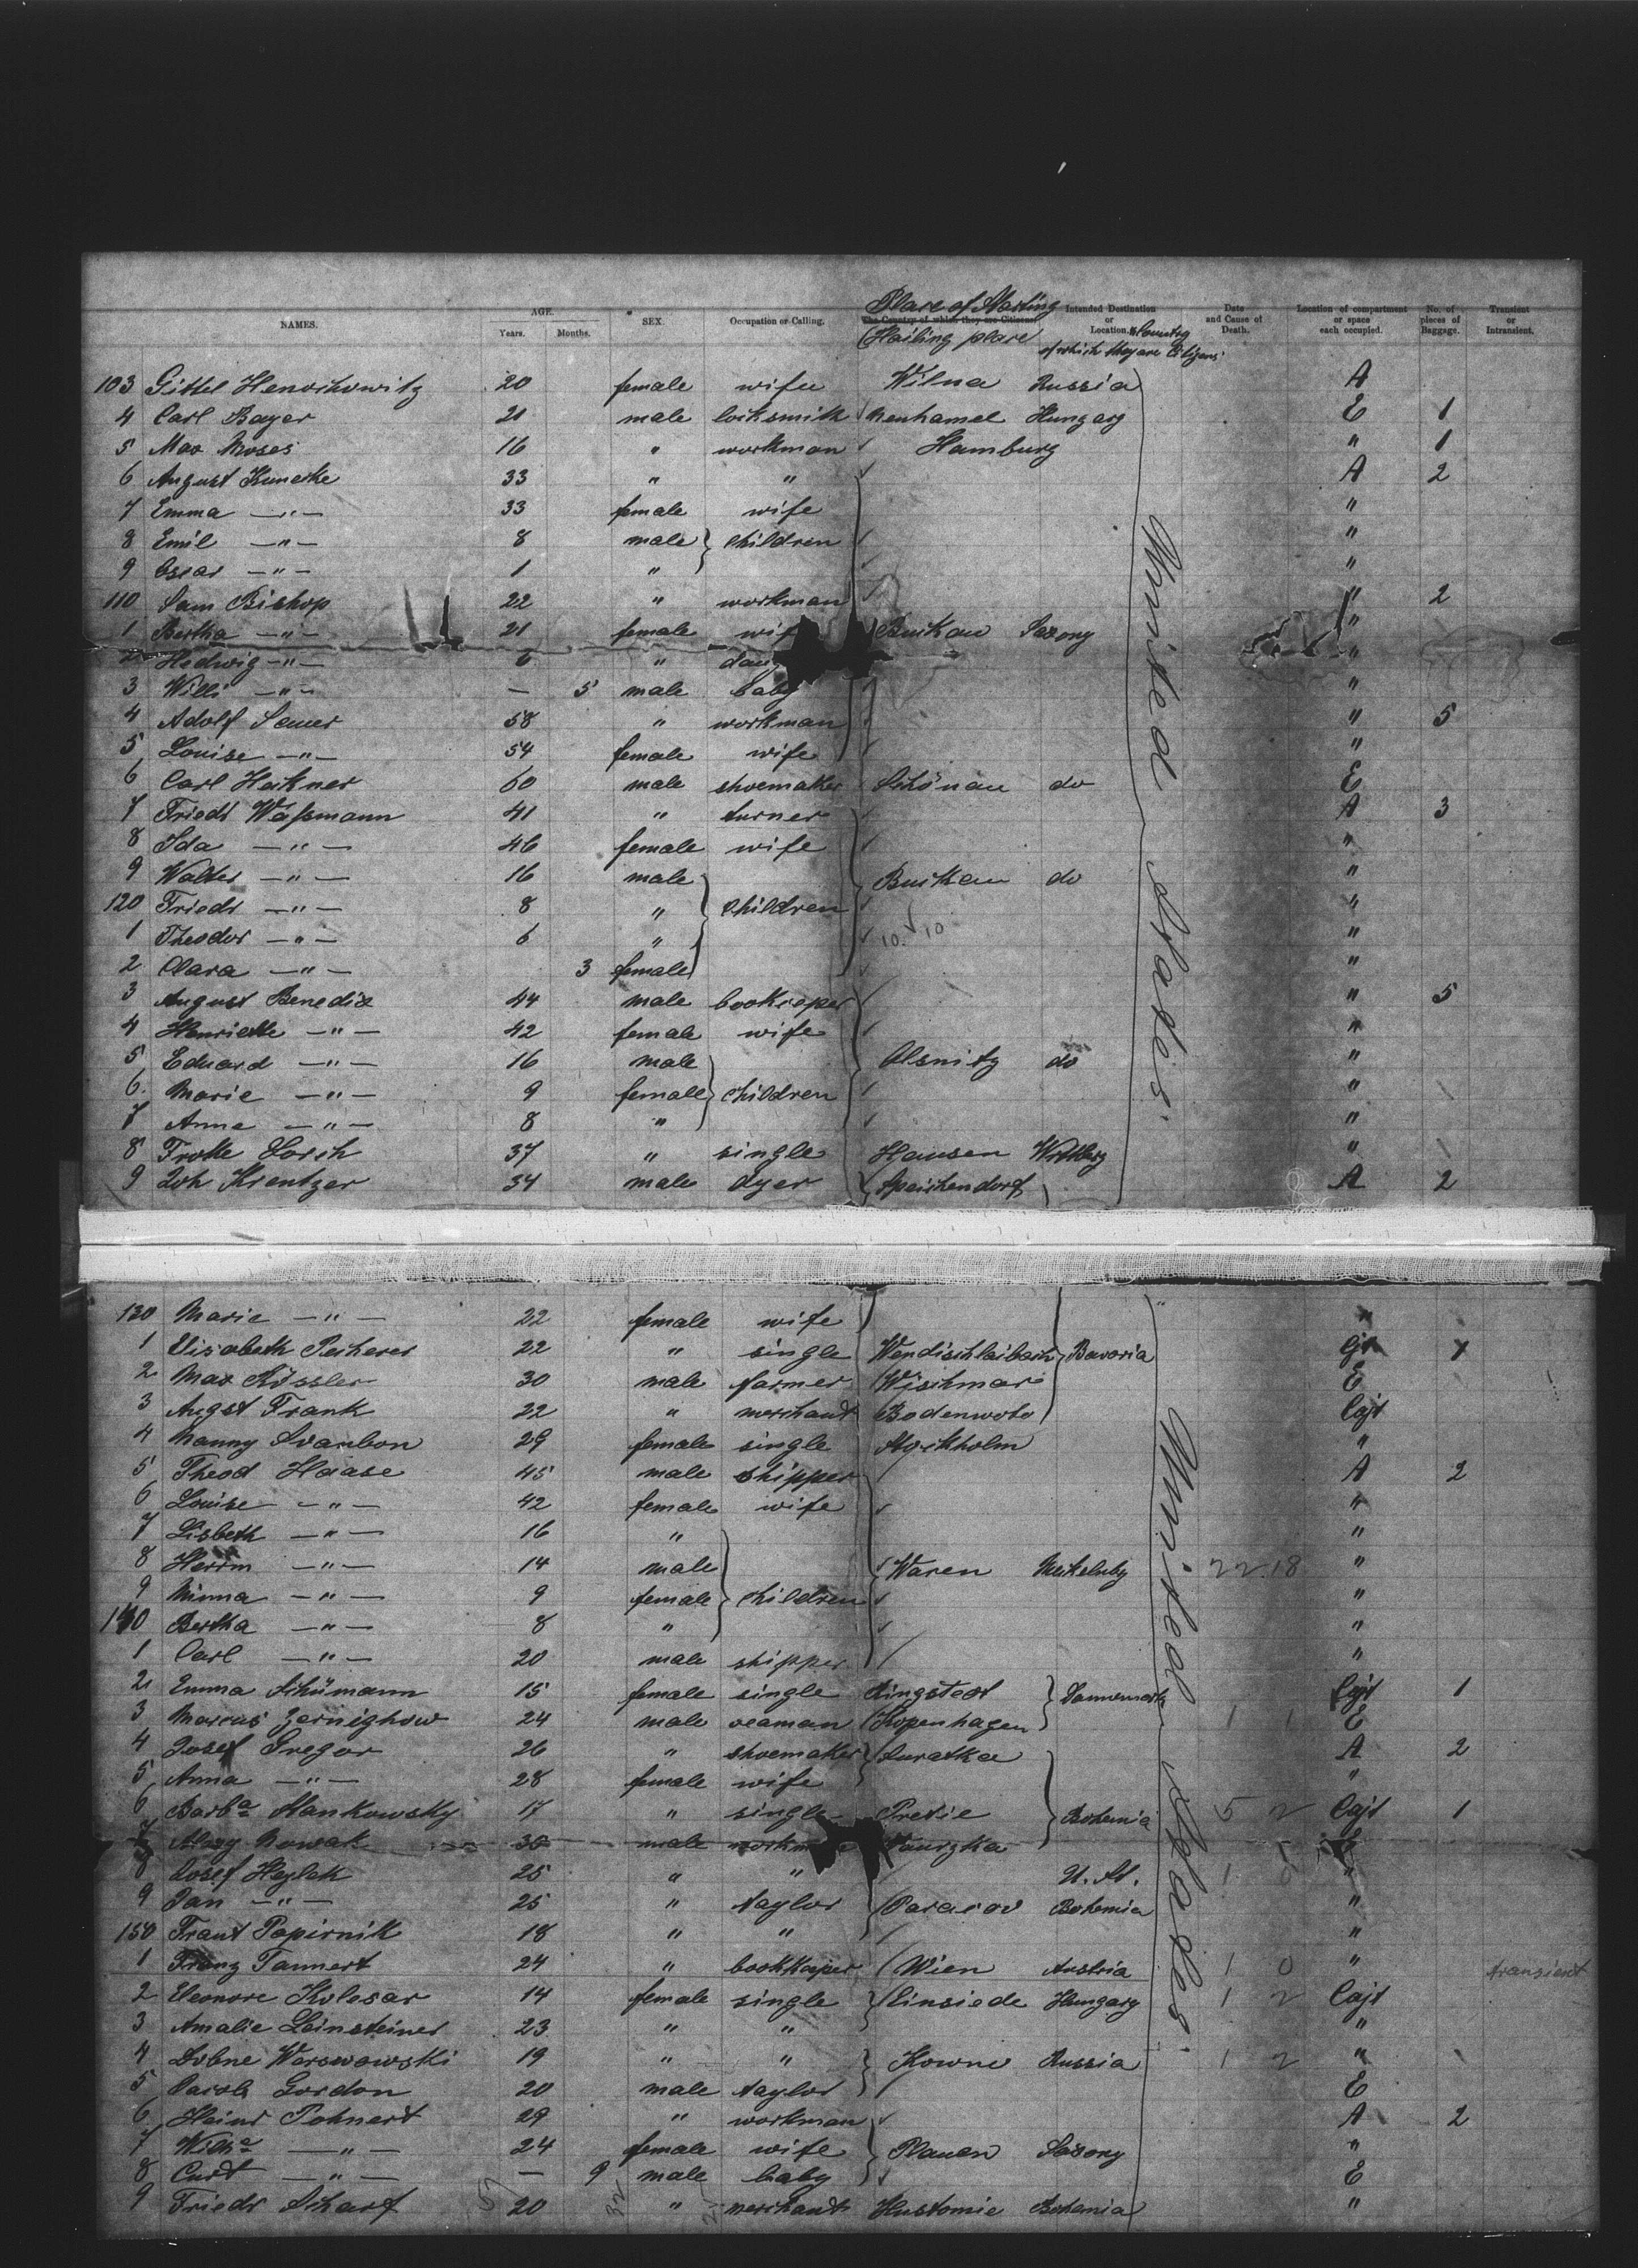 NAMES. AGE. Years. Months. SEX. Occupation or Calling. The Country of which they are Citizens. Intended Destination or Location. Date and Cause of Death. Location of compartment or space each occupied. No. of pieces of Baggage. Transient or Intransient.
Place of Starting
(Hailing place & Country of which they are Citizens
103 Gittel Henochowitz 20 female wife Wilna Russia A
4 Carl Bayer 21 male locksmith Neuhamel Hungary E 1
5 Max Moses 16 " workman Hamburg " 1
6 August Kunecke 33 " " A 2
7 Emma —"— 33 female wife "
8 Emil —"— 8 male children "
9 Oscar —"— 1 " "
110 Sam Bishop 22 " workman " 2
1 Bertha —"— 21 female wif Buckau Saxony "
2 Hedwig —"— 6 " daug "
3 Willi —"— — 5 male baby "
4 Adolf Sauer 58 " workman " 5
5 Louise —"— 54 female wife "
6 Carl Hackner 60 male shoemaker Schönau do E
7 Friedr Waßmann 41 " turner A 3
8 Ida —"— 46 female wife "
9 Walter —"— 16 male Buckau do "
120 Friedr —"— 8 " children "
1 Theodor —"— 6 " 10 10 "
2 Clara —"— 3 female "
3 August Benedix 44 male bookkeeper " 5
4 Henriette —"— 42 female wife "
5 Eduard —"— 16 male Olsnitz do "
6 Marie —"— 9 female children "
7 Anna —"— 8 " "
8 Frotte Losch 37 " single Hausen Wrttbrg "
9 Joh Krentzer 34 male dyer Speichendorf A 2
United States.
130 Marie —"— 22 female wife "
1 Elisabeth Pecherer 22 " single Wendischlaibach Bavaria Cjt
2 Max Rössler 30 male farmer Wischmar E
3 Augst Frank 22 " merchant Bodenwohr Cajt
4 Nanny Svanbon 29 female single Stockholm "
5 Theod Haase 45 male shipper A 2
6 Louise —"— 42 female wife "
7 Lisbeth —"— 16 " "
8 Herrm —"— 14 male Waren Meckelnbg 22.18 "
9 Minna —"— 9 female children "
140 Bertha —"— 8 " "
1 Carl —"— 20 male shipper "
2 Emma Schümann 15 female single Ringstedt Dannemark Cajt 1
3 Marcus Zernighow 24 male seaman Kopenhagen 1 1 E
4 Josef Gregor 26 " shoemaker Luratka A 2
5 Anna —"— 28 female wife "
6 Barba Stankowsky 17 " single Pretie Bohemia 5 2 Cajt 1
7 Nowak 30 male workm E
8 Josef Heylek 25 " " U. St. 1 0 "
9 Jan —"— 25 " taylor Paracov Bohemia "
150 Frant Papirnik 18 " " "
1 Franz Tannert 24 " bookkeeper Wien Austria 1 0 " transient
2 Eleonore Kolesar 14 female single Einsiede Hungary 1 2 Cajt
3 Amalie Leinsteiner 23 " " "
4 Dobne Warswowski 19 " " Kowno Russia 1 2 "
5 Jacob Gordon 20 male taylor E
6 Heinr Pohnert 29 " workman A 2
7 Wilhe —"— 24 female wife Plauen Saxony "
8 Curt —"— — 9 male baby E
9 Friedr Scharf 20 " merchant Hustomie Bohemia "
United States.